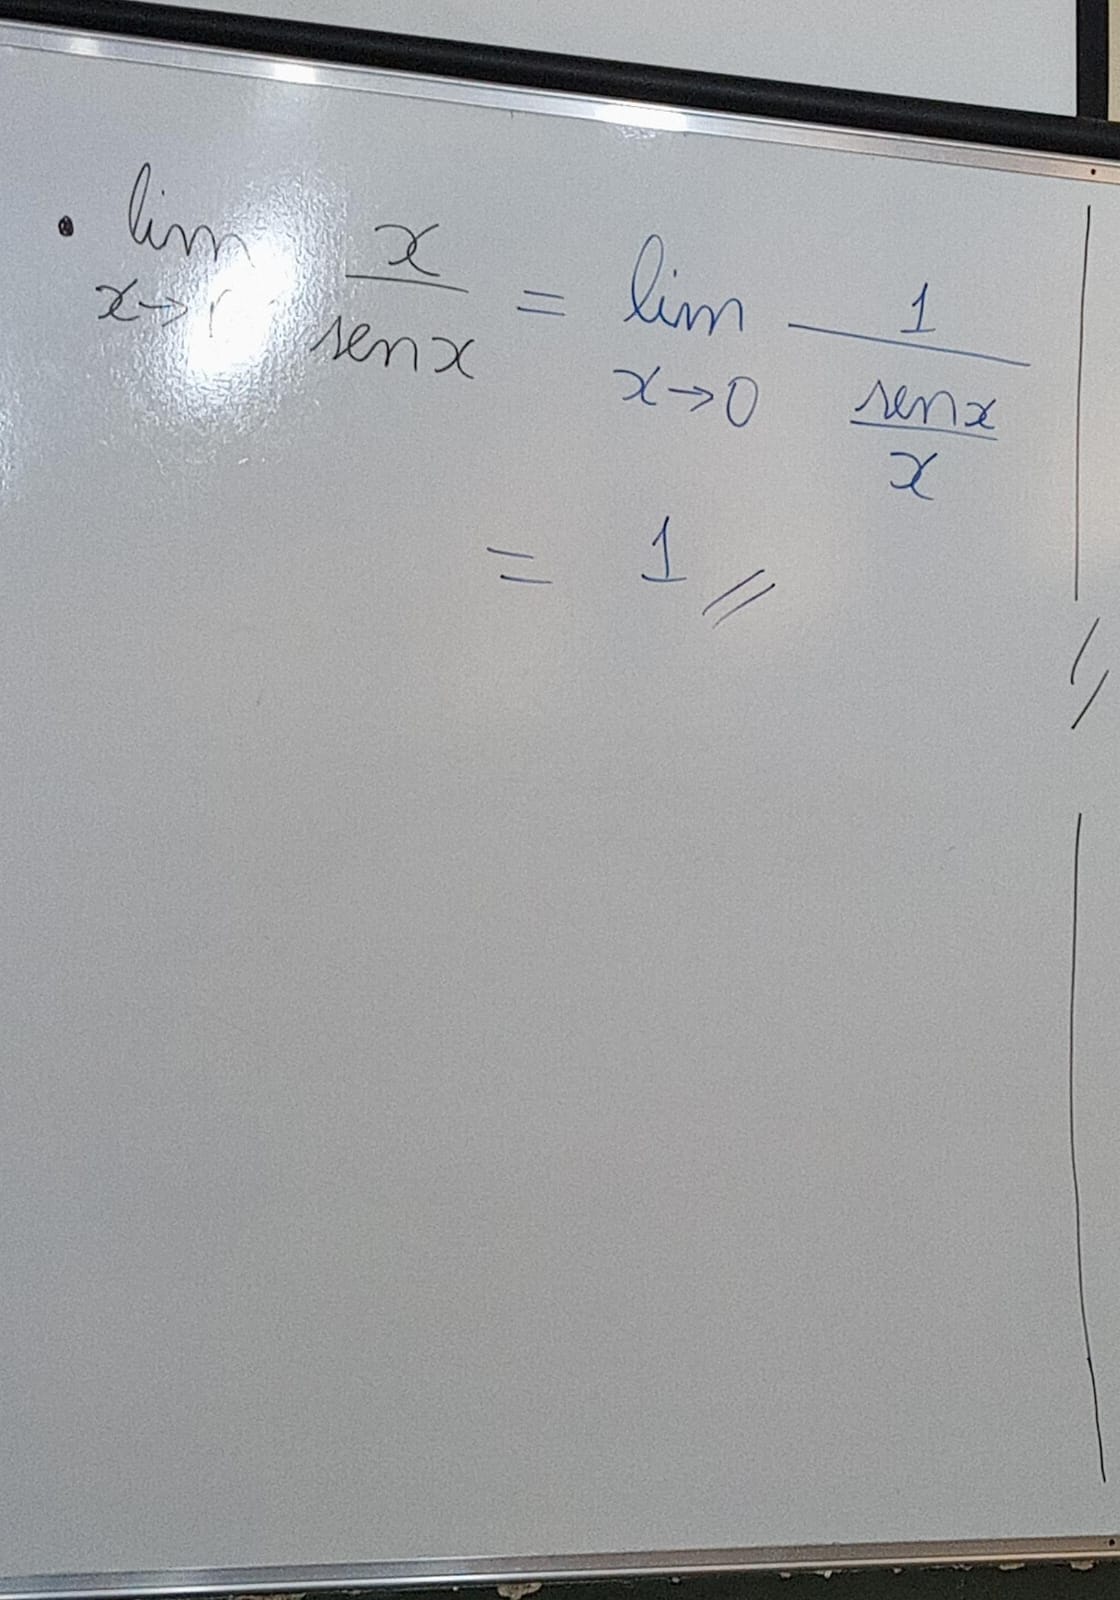 • lim x→ x/senx = lim x→0 1/(senx/x)
= 1 //